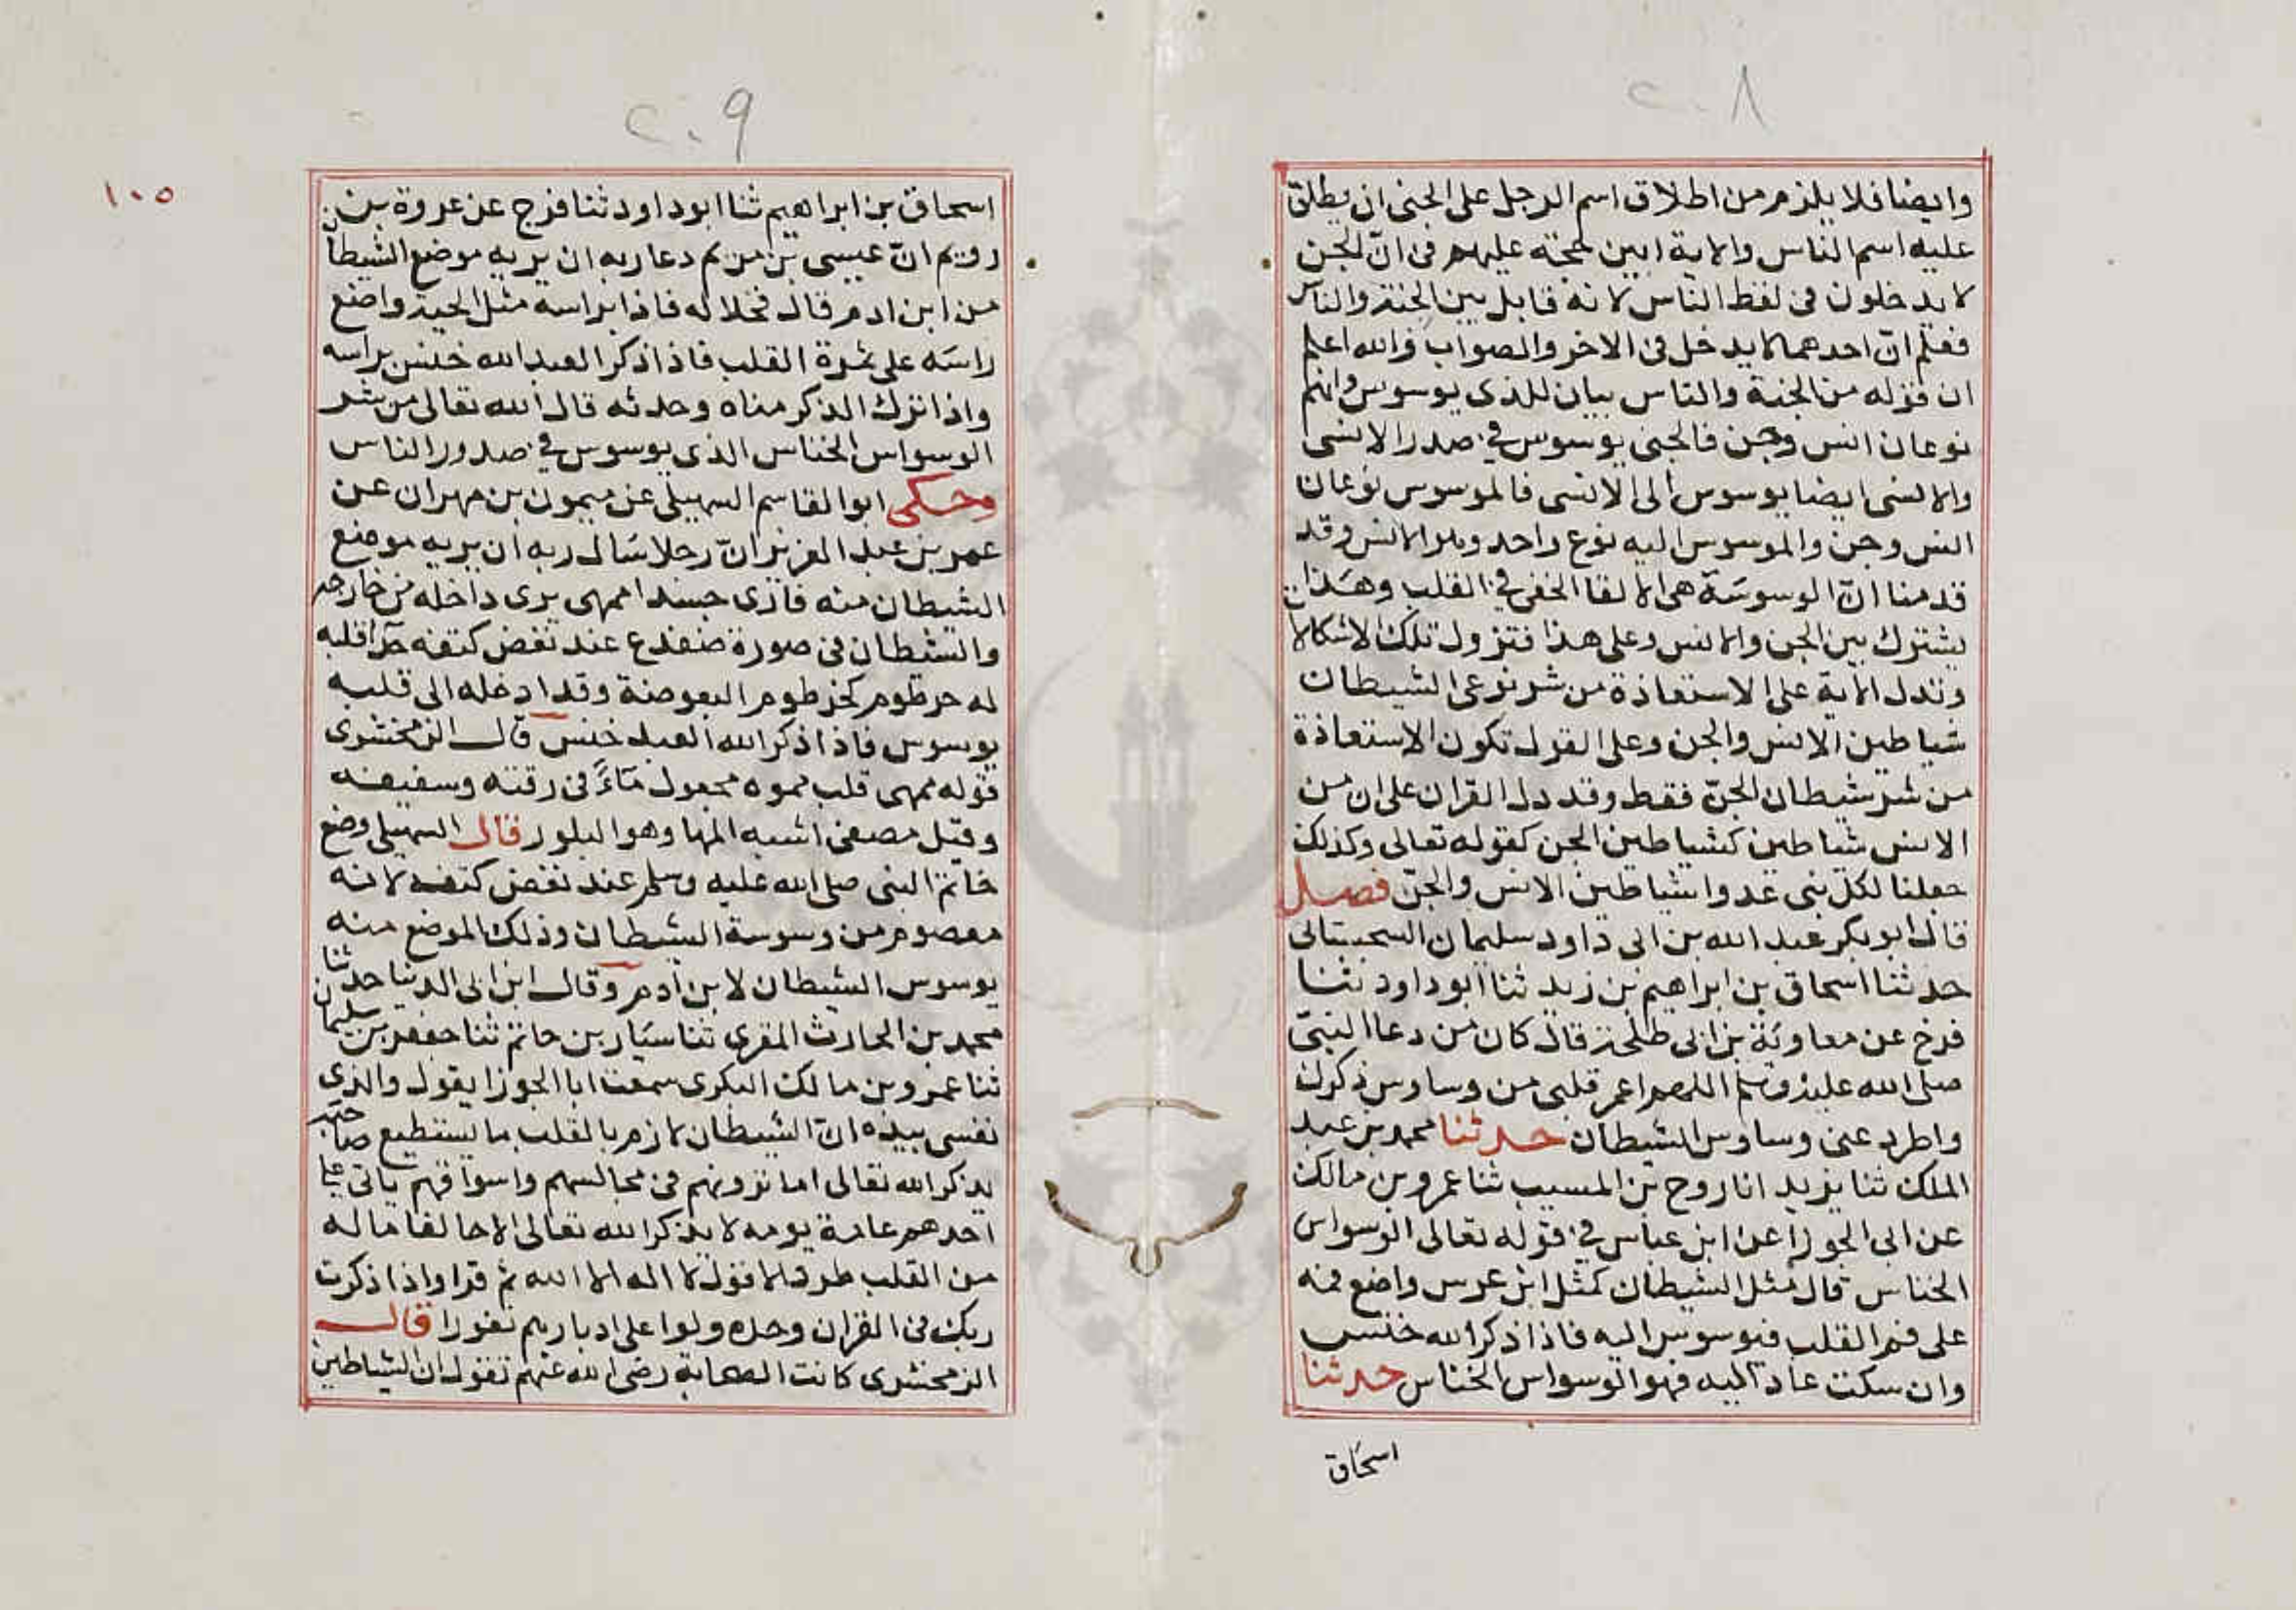 ٢٠٨
وايضا فلا يلزم من اطلاق اسم الرجل على الجنى ان يطلق
عليه اسم الناس والاية ابين حجته عليهم فى انّ الجن
لا يدخلون فى لفظ الناس لانه قابل بين الجنة والناس
فعلم انّ احدهما لا يدخل فى الاخر والصواب والله اعلم
ان قوله من الجنة والناس بيان للذى يوسوس وانهم
نوعان انس وجن فالجنى يوسوس فى صدر الانسى
والانسى ايضا يوسوس الى الانسى فالموسوس نوعان
انس وجن والموسوس اليه نوع واحد وهو الانس وقد
قدمنا انّ الوسوسة هى الالقا الخفى فى القلب وهذا
يشترك بين الجن والانس وعلى هذا فتزول تلك الاشكالات
وتدل الاية على الاستعاذة من شر نوعى الشيطان
شياطين الانس والجن وعلى القول تكون الاستعاذة
من شر شيطان الجنّ فقط وقد دل القران على ان من
الانس شياطين كشياطين الجن كقوله تعالى وكذلك
جعلنا لكلّ نبى عدوا شياطين الانس والجنّ فصل
قال ابو بكر عبد الله بن ابى داود سليمان السجستانى
حدثنا اسحاق بن ابراهيم بن زيد ثنا ابو داود ثنا
فرج عن معاوية بن ابى طلحة قال كان من دعا النبىّ
صلى الله عليه وسلم اللهم اعمر قلبى من وساوس ذكرك
واطرد عنى وساوس الشيطان حدثنا محمد بن عبد
الملك ثنا يزيد انا روح بن المسيب ثنا عمرو بن مالك
عن ابى الجوزا عن ابن عباس فى قوله تعالى الوسواس
الخناس قال مثل الشيطان كمثل ابن عرس واضع فمه
على فم القلب فيوسوس اليه فاذا ذكر الله خنس
وان سكت عاد اليه فهو الوسواس الخناس حدثنا
اسحاق
٢٠٩
١٠٥
اسحاق بن ابراهيم ثنا ابو داود ثنا فرج عن عروة بن
رويم انّ عيسى بن مريم دعا ربه ان يريه موضع الشيطان
من ابن ادم قال فجلا له فاذا براسه مثل الحية واضع
راسه على ثمرة القلب فاذا ذكر العبد الله خنس براسه
واذا ترك الذكر مناه وحدثه قال الله تعالى من شر
الوسواس الخناس الذى يوسوس فى صدور الناس
وحكى ابو القاسم السهيلى عن ميمون بن مهران عن
عمر بن عبد العزيز انّ رجلا سال ربه ان يريه موضع
الشيطان منه فارى جسدا ممهى يرى داخله من خارجه
والشيطان فى صورة ضفدع عند نغض كتفه حذا قلبه
له خرطوم كخرطوم البعوضة وقد ادخله الى قلبه
يوسوس فاذا ذكر الله العبد خنس قال الزمخشرى
قوله ممهى قلب مموه مجعول ماءً فى رقته وسفيفه
وقيل مصفى اشبه المها وهو البلور قال السهيلى وضع
خاتم النبى صلى الله عليه وسلم عند نغض كتفه لانه
معصوم من وسوسة الشيطان وذلك الموضع منه
يوسوس الشيطان لابن ادم وقال ابن ابى الدنيا حدثنا
محمد بن الحارث المقرى ثنا سيار بن حاتم ثنا جعفر بن سليمان
ثنا عمرو بن مالك النكرى سمعت ابا الجوزا يقول والذى
نفسى بيده انّ الشيطان لازم بالقلب ما يستطيع صاحبه
يذكر الله تعالى اما ترونهم فى مجالسهم واسواقهم ياتى على
احدهم عامة يومه لا يذكر الله تعالى الا حالفا ما له
من القلب طرد الا قول لا اله الا الله ثم قرا واذا ذكرت
ربك فى القران وحده ولوا على ادبارهم نفورا قال
الزمخشرى كانت الصحابة رضى الله عنهم تقول ان الشياطين